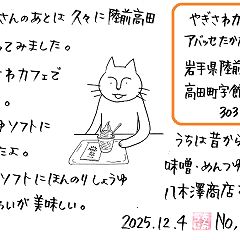 さんのあとは 久々に陸前高田
ってみました。
さわカフェで
。
ゅソフトに
たよ。
ソフトにほんのりしょうゆ
わいが美味しい。
やぎさわカ
アバッセたか
岩手県陸前
高田町字館
303
うちは昔から
味噌・めんつゆ
八木澤商店
2025.12.4 No,